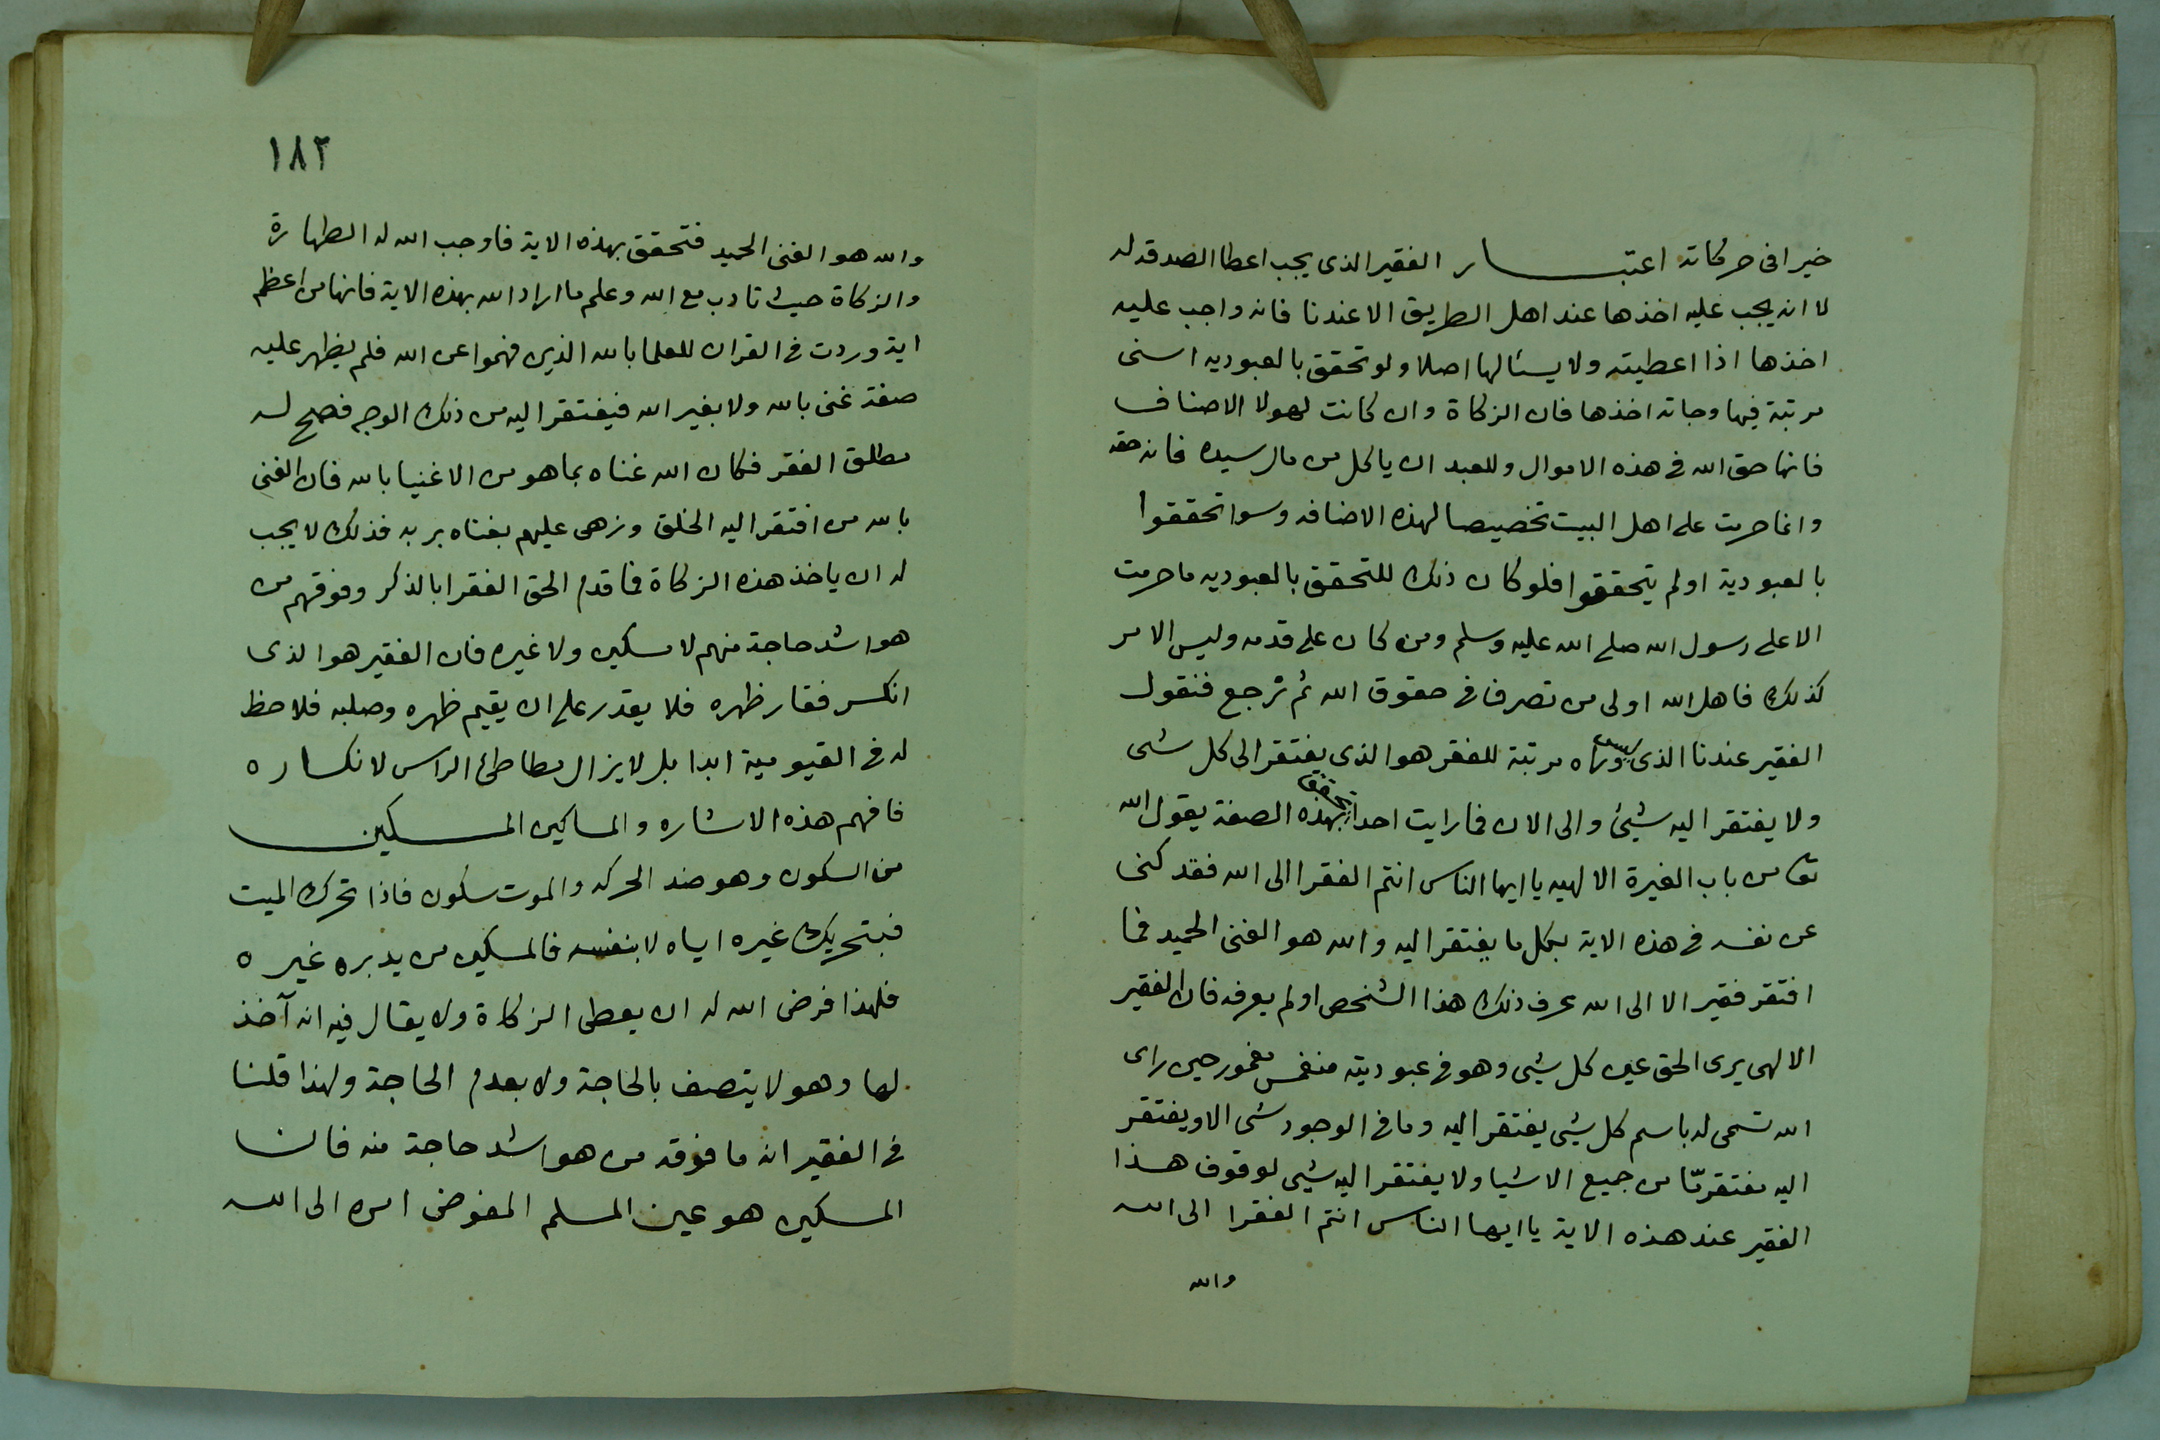 خيرا فى حركاته اعتبار الفقير الذى يجب اعطا الصدقه له
لا انه يجب عليه اخذها عند اهل الطريق الا عندنا فانه واجب عليه
اخذها اذا اعطيته ولا يسئالها اصلا ولو تحقق بالعبوديه اسنى
مرتبة فيها وجاته اخذها فان الزكاة وان كانت لهولا الاصناف
فانها حق الله فى هذه الاموال وللعبد ان ياكل من مال سيده فانه حقه
وانما حرمت على اهل البيت تخصيصا لهذه الاضافه وسوا تحققوا
بالعبودية اولم يتحققوا فلو كان ذلك للتحقق بالعبوديه ما حرمت
الا على رسول الله صلى الله عليه وسلم ومن كان على قدمه وليس الامر
كذلك فاهل الله اولى من تصرف فى حقوق الله ثم نرجع فنقول
الفقير عندنا الذى ليس وراه مرتبة للفقر هو الذى يفتقر الى كل شى
ولا يفتقر اليه شيئ والى الان فما رايت احدا تحقق بهذه الصفة يقول الله
تعٰ من باب الغيرة الالهيه يا ايها الناس انتم الفقرا الى الله فقد كنى
عن نفسه فى هذه الاية بكل ما يفتقر اليه والله هو الغنى الحميد فما
افتقر فقير الا الى الله عرف ذلك هذا الشخص اولم يعرفه فان الفقير
الالهى يرى الحق عين كل شيى وهو فى عبوديته منغمس مغمور حين راى
الله تسمى له باسم كل شيى يفتقر اليه وما فى الوجود شى الا ويفتقر
اليه مفتقرمّا من جميع الاشيا ولا يفتقر اليه شيى لوقوف هذا
الفقير عند هذه الاية يا ايها الناس انتم الفقرا الى الله
والله
١٨٢
والله هو الغنى الحميد فتحقق بهذه الاية فاوجب الله له الطهارة
والزكاة حيث تادب مع الله وعلم ما اراد الله بهذه الاية فانها من اعظم
اية وردت فى القران للعلما بالله الذين فهموا عن الله فلم يظهر عليه
صفة غنى بالله ولا بغير الله فيفتقر اليه من ذلك الوجه فصح له
مطلق الفقر فكان الله غناه بما هو من الاغنيا بالله فان الغنى
بالله من افتقر اليه الخلق وزهى عليهم بغناه بربه فذلك لا يجب
له ان ياخذ هذه الزكاة فما قدم الحق الفقرا بالذكر وفوقهم من
هو اشد حاجة منهم لا مسكين ولا غيره فان الفقير هو الذى
انكسر فقار ظهره فلا يقدر على ان يقيم ظهره وصلبه فلا حظ
له فى القيومية ابدا بل لا يزال مطاطئ الراس لانكساره
فافهم هذه الاشاره والمساكين المسكين
من السكون وهو ضد الحركه والموت سكون فاذا تحرك الميت
فبتحريك غيره اياه لا بنفسه فالمسكين من يدبره غيره
فلهذا فرض الله له ان يعطى الزكاة ولا يقال فيه انه آخذ
لها وهو لا يتصف بالحاجة ولا بعدم الحاجة ولهذا قلنا
فى الفقير انه ما فوقه من هو اشد حاجة منه فان
المسكين هو عين المسلم المفوض امره الى الله